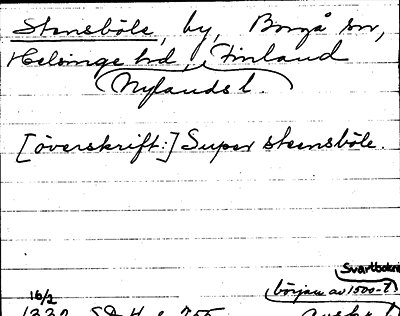 Stensböle, by, Borgå sn,
Helsinge hd, Finland
(Nylands l.
[överskrift:] Super stensböle.
Svartbokn
början av 1500-t)
16/2